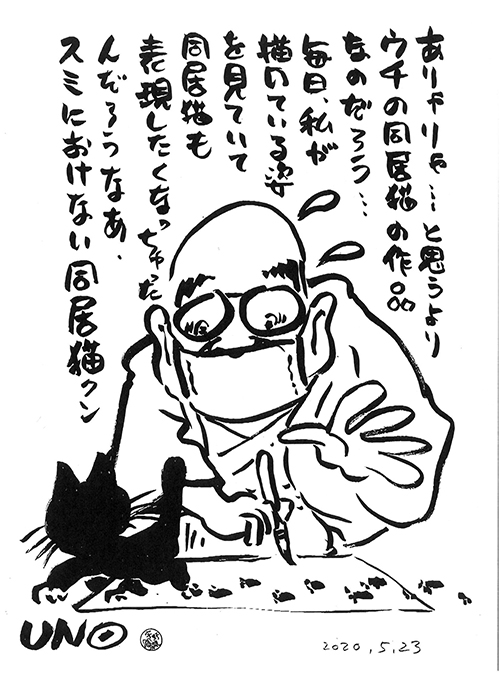 ありゃりゃ…と思うより
ウチの同居猫の作品
なのだろう…
毎日、私が
描いている姿
を見ていて
同居猫も
表現したくなっちゃた
んだろうなあ、
スミにおけない同居猫クン
UNO
2020,5,23